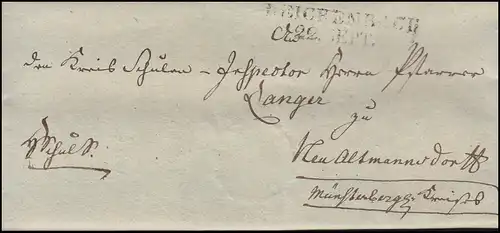 REICHENBACH
22. SEPT.
den Kreis Schulen-Inspector Herrn Pfarrer
Langer
zu
Neu Altmannsdorff
Münsterbergschen Kreises